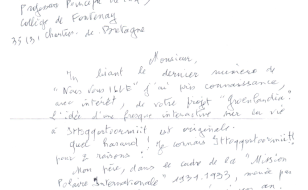 Professeur Principal
Collège de Fontenay
35131 Chartres de Bretagne
Monsieur,
En lisant le dernier numéro de
j'ai pris connaissance,
avec intérêt, de votre projet "Groenlandia".
L'idée d'une fresque interactive sur la vie
à Ittoqqortoormiit est originale.
Quel hasard! Je connais Ittoqqortoormiit
pour 2 raisons:
Mon père, dans le cadre de la "Mission
Polaire Internationale" 1931.1933,
an.